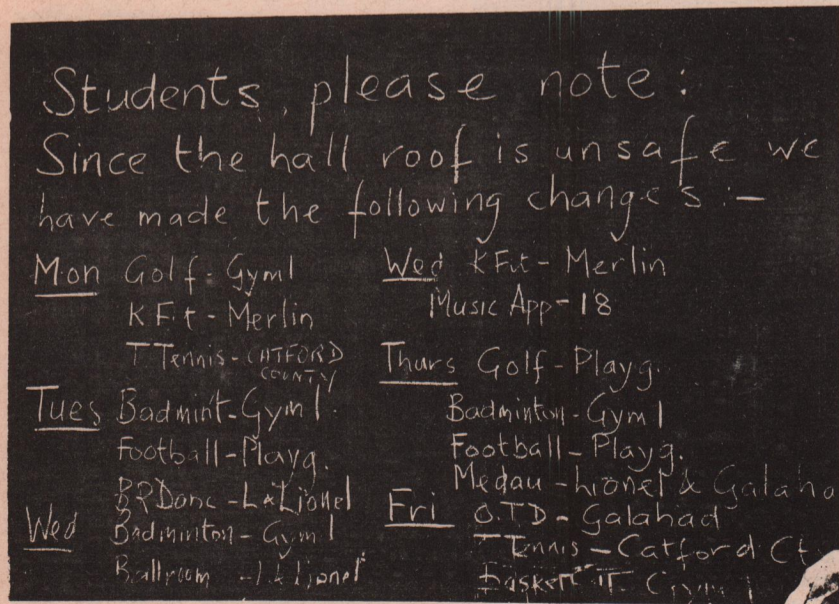 Students, please note:
Since the hall roof is unsafe we
have made the following changes:-
Mon Golf - Gym 1
K Fit - Merlin
T Tennis - CATFORD
COUNTY
Tues Badmint - Gym 1
Football - Playg.
- L & Lionel
Wed Badminton - Gym 1
Ballroom - L & Lionel
Wed K Fit - Merlin
Music App - 18
Thurs Golf - Playg.
Badminton - Gym 1
Football - Playg.
Medau - Lionel & Galaha
Fri O.T.D - Galahad
T Tennis - Catford Ct
Gym